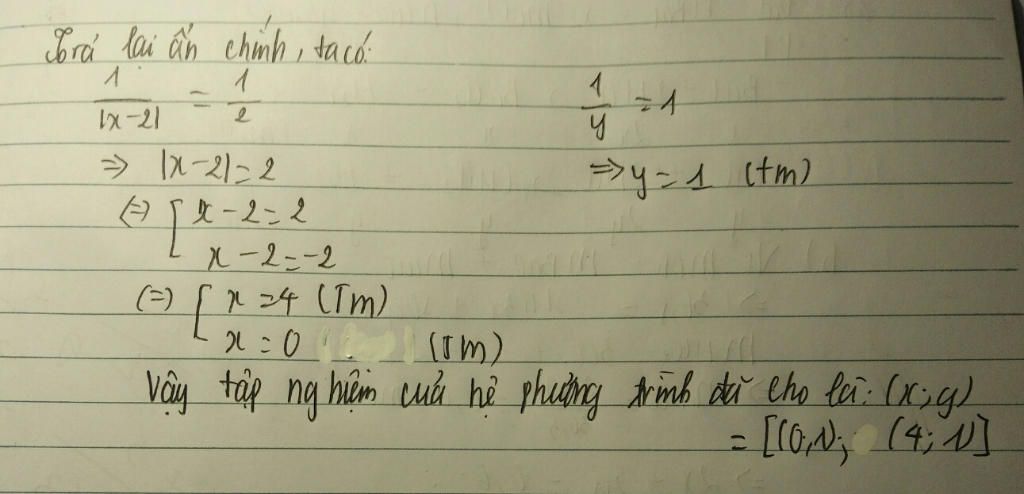 Trả lại ẩn chính, ta có:
1/|x-2| = 1/2    1/y = 1
=> |x-2| = 2    => y = 1 (tm)
(=) [ x - 2 = 2
x - 2 = -2
(=) [ x = 4 (Tm)
x = 0 (Tm)
Vậy tập nghiệm của hệ phương trình đã cho là: (x; y)
= [(0;1); (4; 1)]